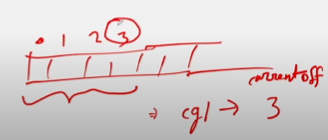 0 1 2 3
current off
⇒ cg1 → 3